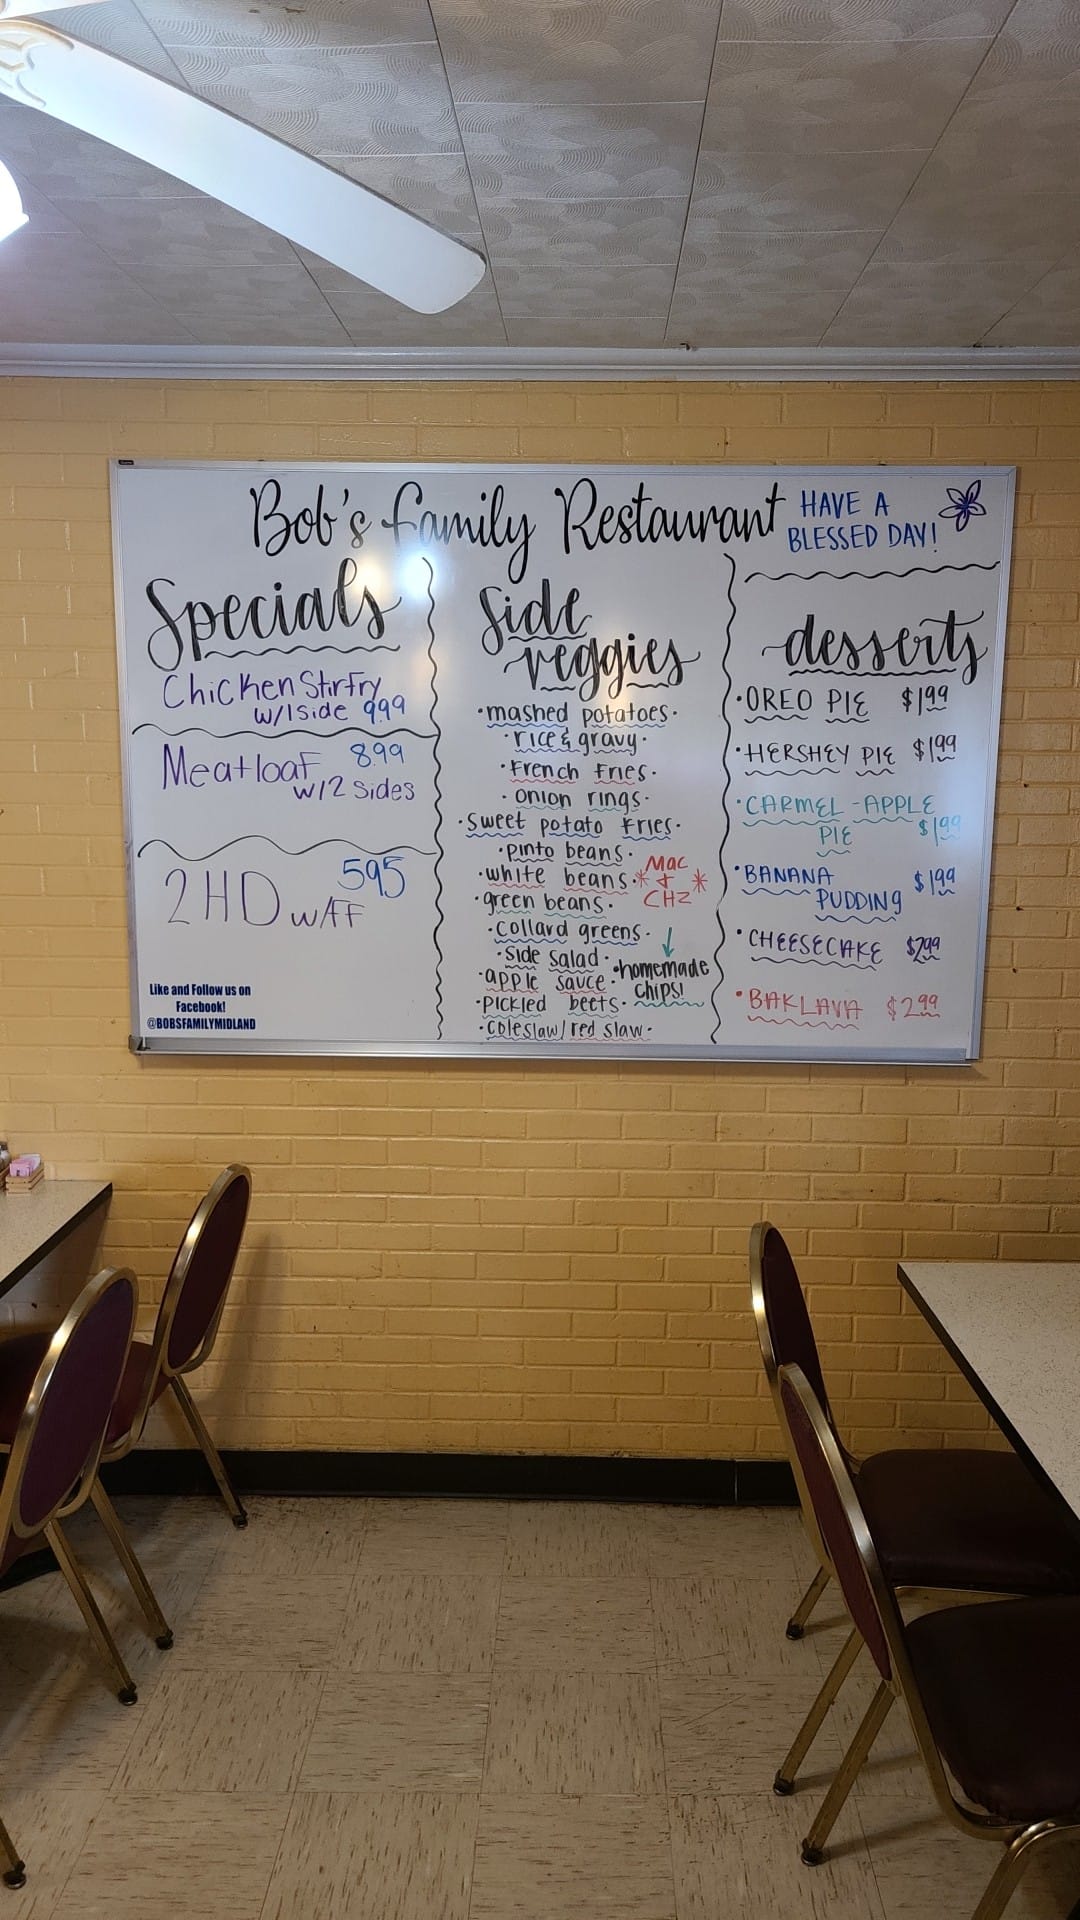 Bob's Family Restaurant
HAVE A
BLESSED DAY!
Specials
Chicken Stirfry
w/1side 9.99
Meatloaf 8.99
w/2 sides
2 HD w/FF 5.95
Like and Follow us on
Facebook!
@BOBSFAMILYMIDLAND
Side
veggies
·mashed potatoes·
·rice & gravy·
·French Fries·
·onion rings·
·sweet potato fries·
·pinto beans·
·white beans·
·green beans·
·collard greens·
·side salad·
·apple sauce·
·pickled beets·
·coleslaw/red slaw·
*Mac
+
CHZ*
↓
·homemade
chips!
desserts
·OREO PIE $1.99
·HERSHEY PIE $1.99
·CARMEL-APPLE
PIE $1.99
·BANANA
PUDDING $1.99
·CHEESECAKE $2.99
·BAKLAVA $2.99